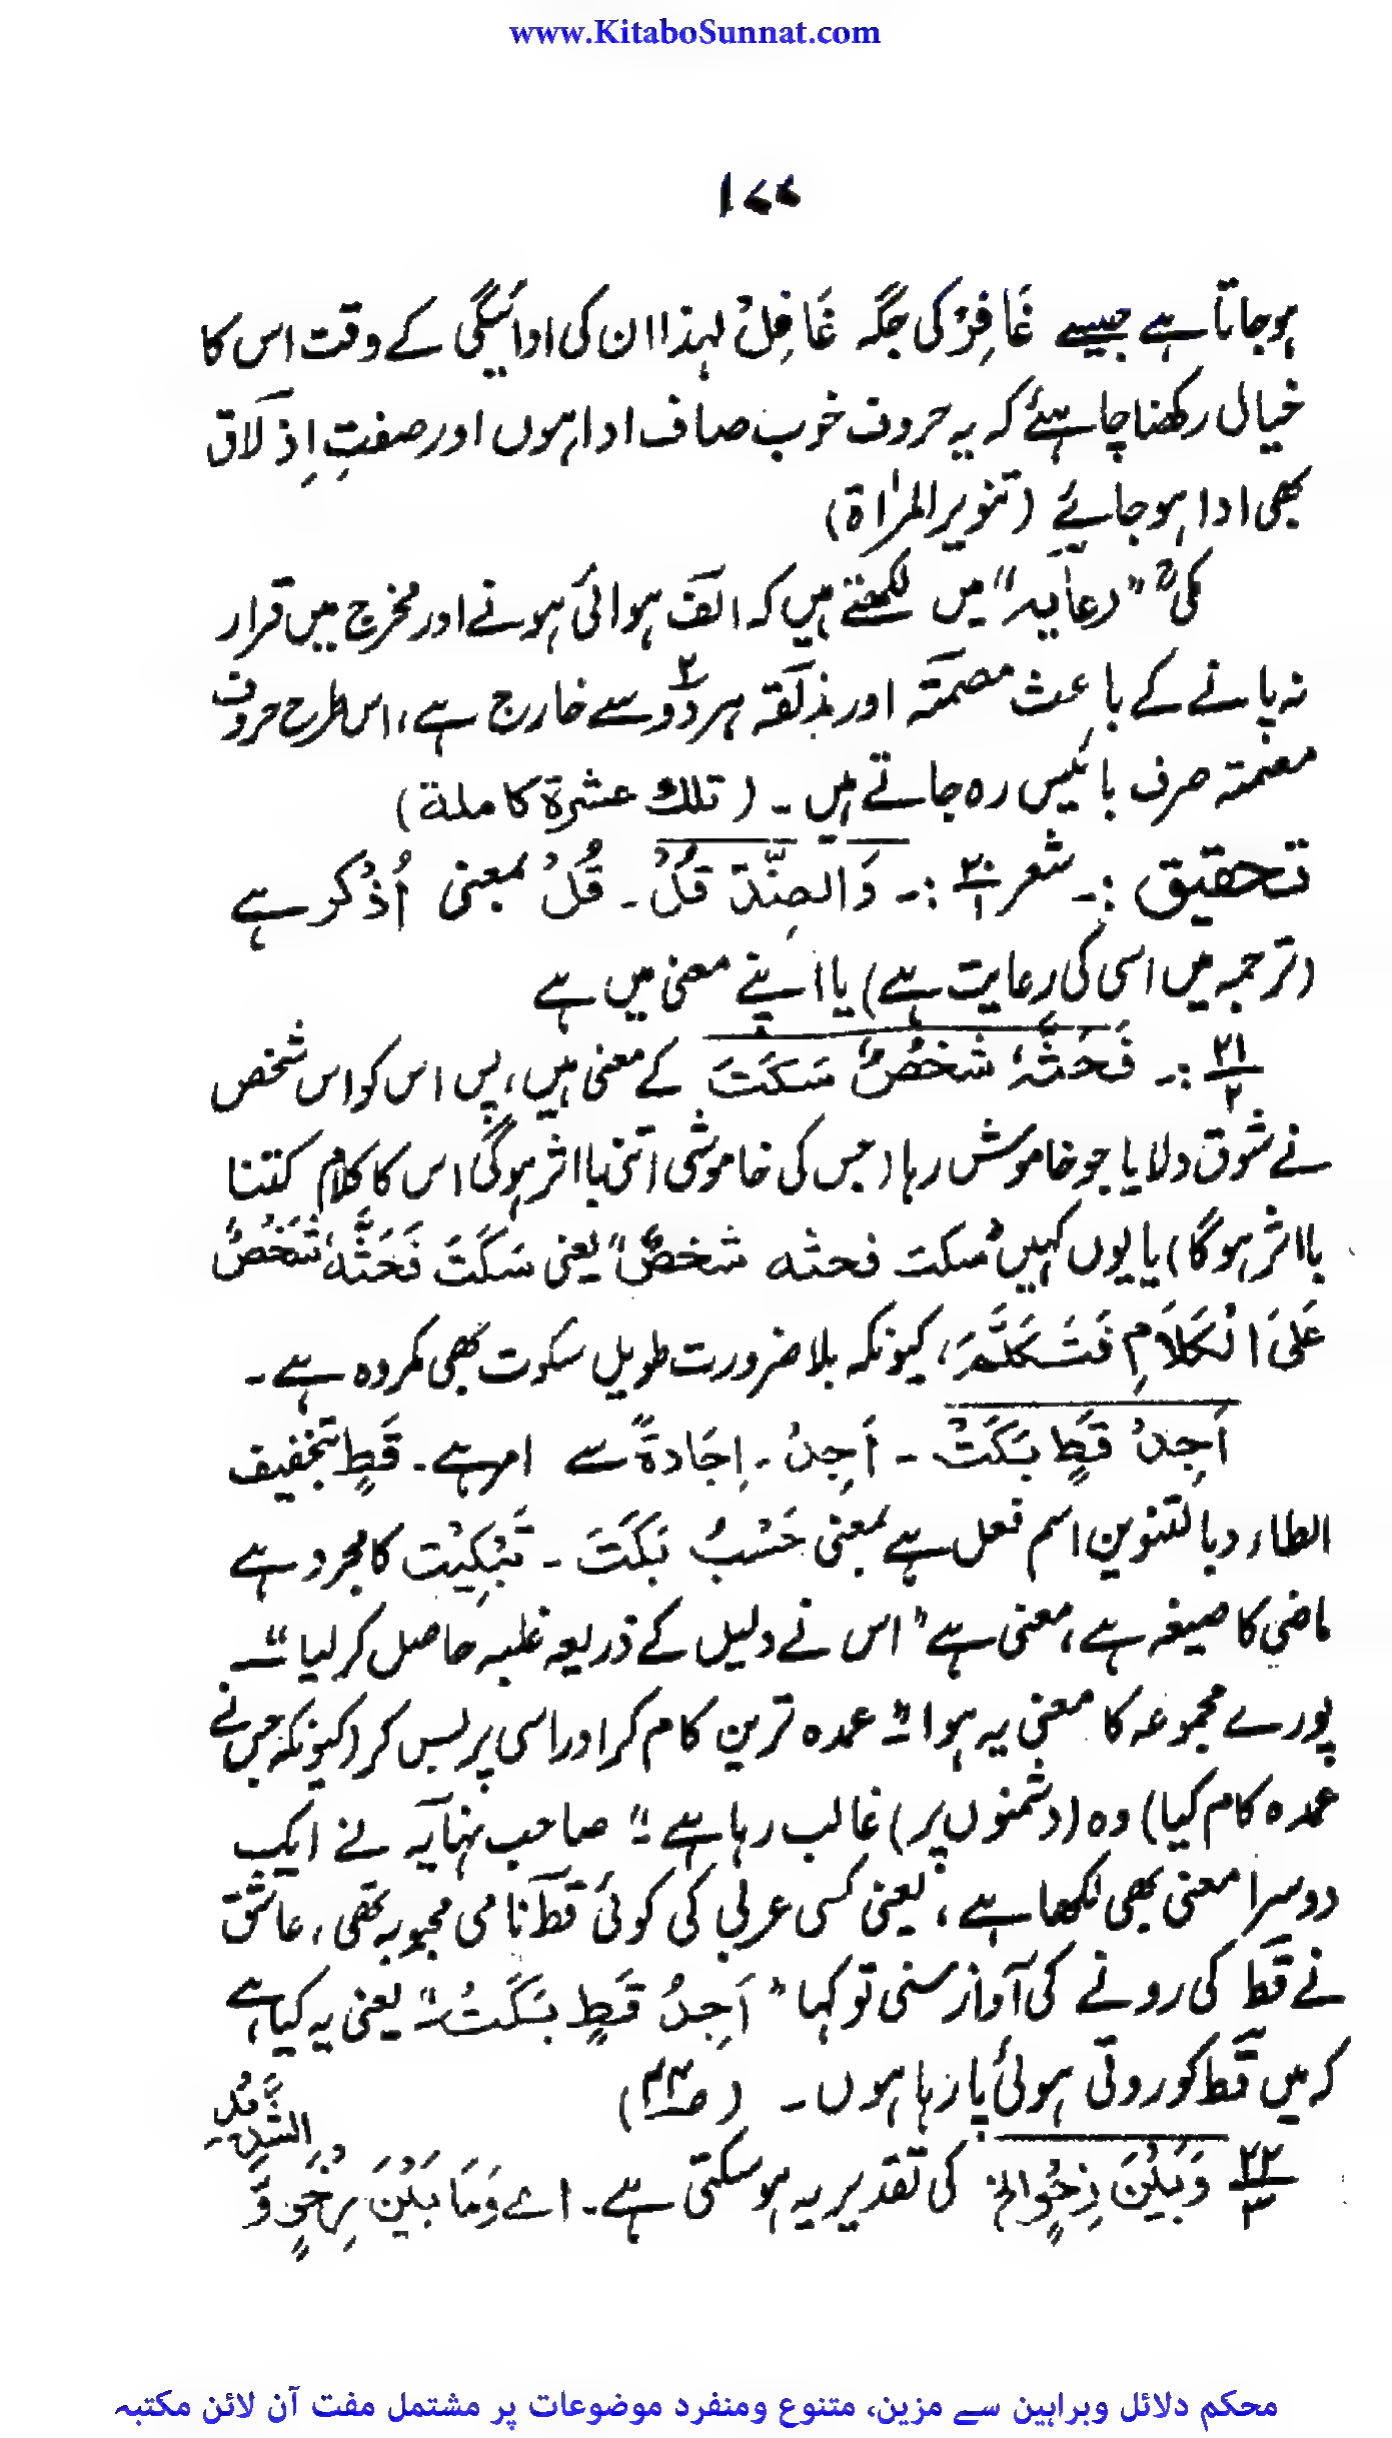 www.KitaboSunnat.com
۱۷۷
ہوجاتا ہے جیسے غَافِرْ کی جگہ غَافِلْ لہذا ان کی ادائیگی کے وقت اس کا
خیال رکھنا چاہئے کہ یہ حروف خوب صاف ادا ہوں اور صفتِ اِذلاق
بھی ادا ہوجائے (تنویر المرٰاۃ)
مکیؒ "رعایہ" میں لکھتے ہیں کہ الف ہوائی ہونے اور مخرج میں قرار
نہ پانے کے باعث مصمتہ اور مذلقہ ہر دو۲ سے خارج ہے، اس طرح حروف
مصمتہ صرف بائیس رہ جاتے ہیں ۔ (تلك عشرة كاملة)
تحقیق :۔ شعر ۲۰/۱ :۔ وَالضِّدَّ قُلْ ۔ قُلْ بمعنی اُذْکُر ہے
(ترجمہ میں اسی کی رعایت ہے) یا اپنے معنی میں ہے
۲۱/۲ :۔ فَحَثَّہٗ شَخْصٌ سَکَتَ کے معنی ہیں، پس اس کو اس شخص
نے شوق دلایا جو خاموش رہا (جس کی خاموشی اتنی بااثر ہوگی اس کا کلام کتنا
بااثر ہوگا) یا یوں کہیں "سکت فحثہ شخصٌ" یعنی سَکَتَ فَحَثَّہٗ شَخْصٌ
عَلَی الْکَلَامِ فَتَکَلَّمَ، کیونکہ بلا ضرورت طویل سکوت بھی مکروہ ہے ۔
اَجِدْ قَطٍ بَکَتْ ۔ اَجِدْ ۔ اِجَادۃً سے امر ہے ۔ قَطٍ بتخفیف
الطاء وبالتنوین اسم فعل ہے بمعنی حَسْبُ بَکَتَ ۔ تَبْکِیْت کا مجرد ہے
ماضی کا صیغہ ہے، معنی ہے "اس نے دلیل کے ذریعہ غلبہ حاصل کرلیا"۔
پورے مجموعہ کا معنی یہ ہوا "عمدہ ترین کام کر اور اسی پر بس کر (کیونکہ جس نے
عمدہ کام کیا) وہ (دشمنوں پر) غالب رہا ہے"۔ صاحب نہایہ نے ایک
دوسرا معنی بھی لکھا ہے، یعنی کسی عربی کی کوئی قط نامی محبوبہ تھی، عاشق
نے قط کی رونے کی آواز سنی تو کہا "اَجِدُ قَطٍ بَکَتُ"۔ یعنی یہ کیا ہے
کہ میں قط کو روتی ہوئی پا رہا ہوں ۔ (ص۴۳)
۲۲/۳ وَبَیْنَ رِخْوٍ الخ کی تقدیر یہ ہوسکتی ہے ۔ اے وَمَا بَیْنَ رِخْوٍ وَّ
محکم دلائل وبراہین سے مزین، متنوع ومنفرد موضوعات پر مشتمل مفت آن لائن مکتبہ